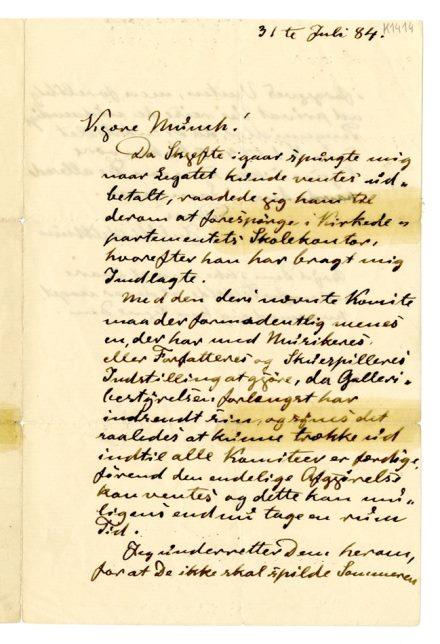 K1414
31te Juli 84.
Kjære Munch!
Da Skjefte igaar spurgte mig
naar Legatet kunde ventes ud-
betalt, raadede jeg ham til
derom at forespørge i Kirkede-
partementets Skolekontor,
hvorefter han har bragt mig
Indlagte.
Med den deri nævnte Komite
maa der formodentlig menes
en, der har med Musikeres
eller Forfatteres og Skuespilleres
Indstilling at gjøre, da Galleri-
bestyrelsen forlængst har
indsendt sin, og synes det
saaledes at kunne trække ud
indtil alle Komiteer er færdige,
førend den endelige Afgjørelse
kan ventes og dette kan mu-
ligens endnu tage en rum
Tid.
Jeg underretter Dem herom,
for at De ikke skal spilde Sommeren